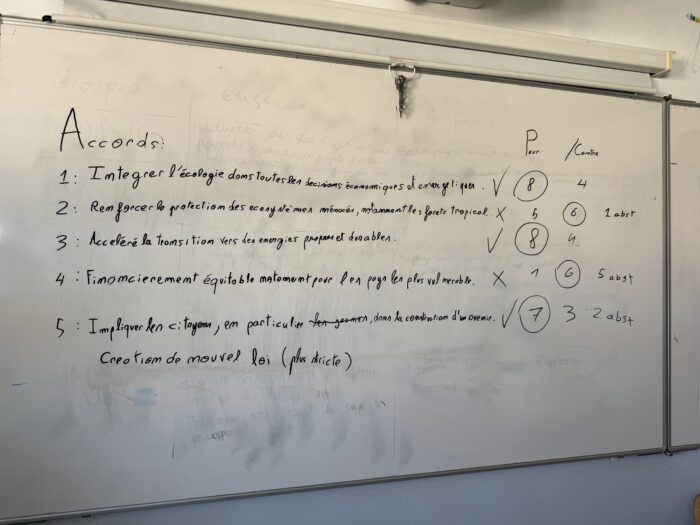 Accords: Pour /Contre
1: Integrer l'écologie dans toutes les decisions économiques et energtiques. ✓ 8 4
2: Renforcer la protection des ecosystèmes ménacés, notamment les forets tropical. X 5 6 1 abst
3: Acceléré la transition vers des energies propres et durables. ✓ 8 4
4: Financierement équitable notament pour les pays les plus vulnerable. X 1 6 5 abst
5: Impliquer les citoyens, en particulier les jeunes, dans la construction d'un avenir. ✓ 7 3 2 abst
Creation de nouvel loi (plus stricte)